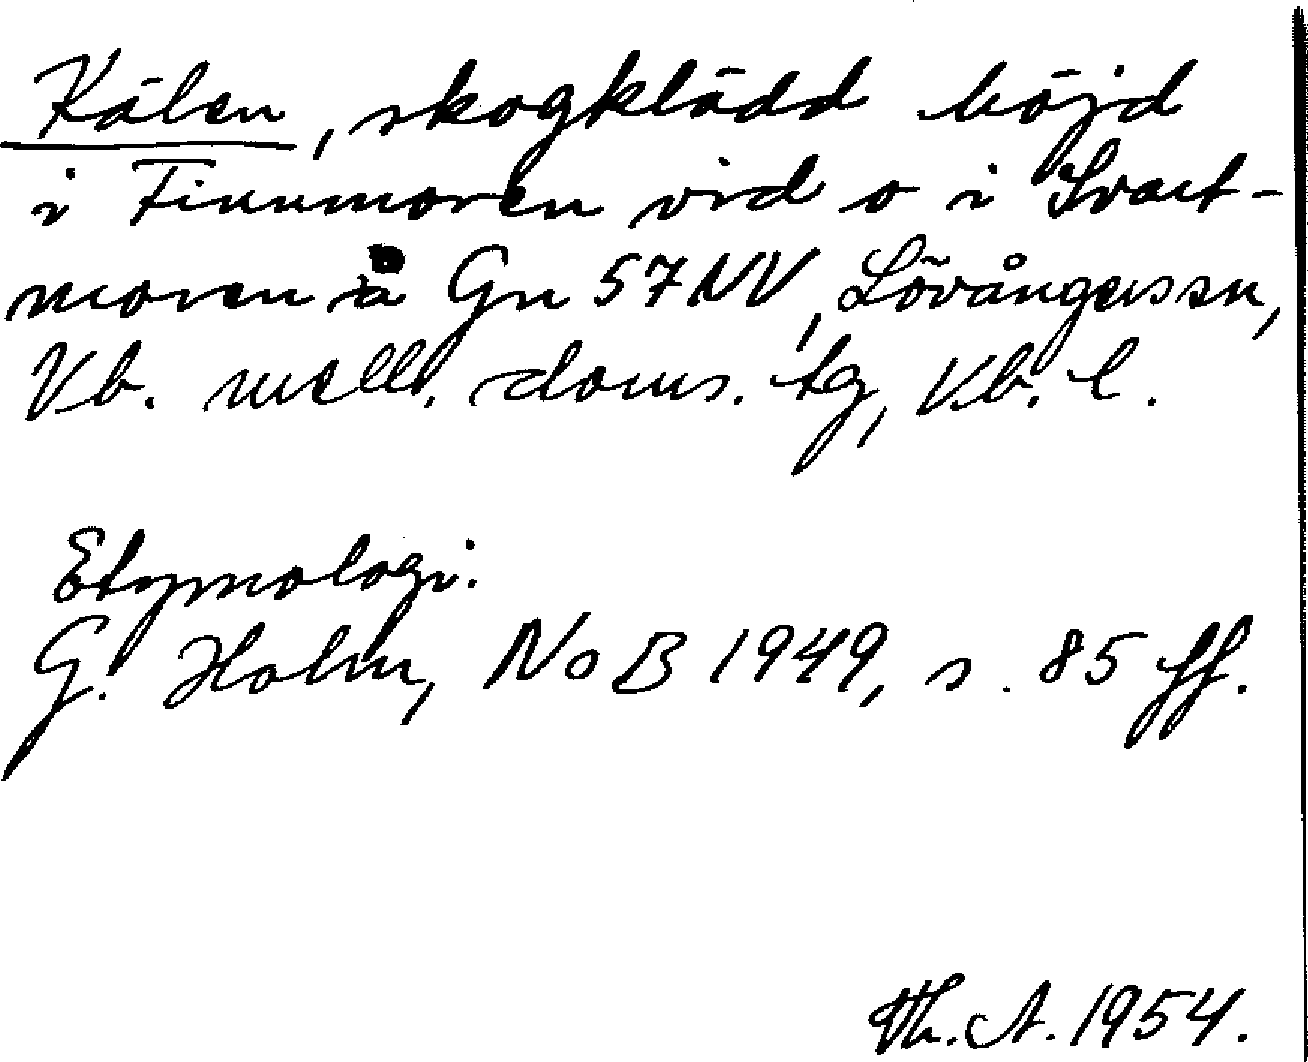 Kälen, skogklädd höjd
i Finnmoren vid o i Svart-
moren å Gn 57NV, Lövångerssn,
Vb. mell. doms. tg, Vb. l.
Etymologi:
G. Holm, NoB 1949, s. 85 ff.
Th. A. 1954.